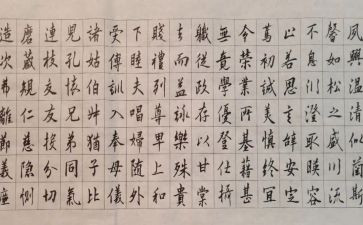 夙興溫凊似蘭斯
馨如松之盛川流
不息淵澄取暎容
止若思言辭安定
篤初誠美慎終宜
令榮業所基籍甚
無竟學優登仕攝
職從政存以甘棠
去而益詠樂殊貴
賤禮別尊卑上和
下睦夫唱婦隨外
受傅訓入奉母儀
諸姑伯叔猶子比
兒孔懷兄弟同氣
連枝交友投分切
磨箴規仁慈隱惻
造次弗離節義廉